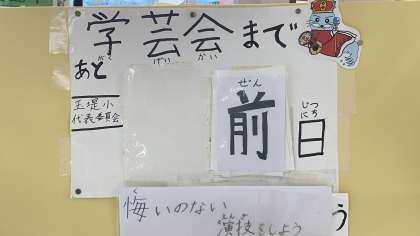 学芸会まで
がく げい かい
あと
玉堤小
代表委員会
ぜん
前
じつ
にち
日
く
悔いのない
えんぎ
演技をしよう
う